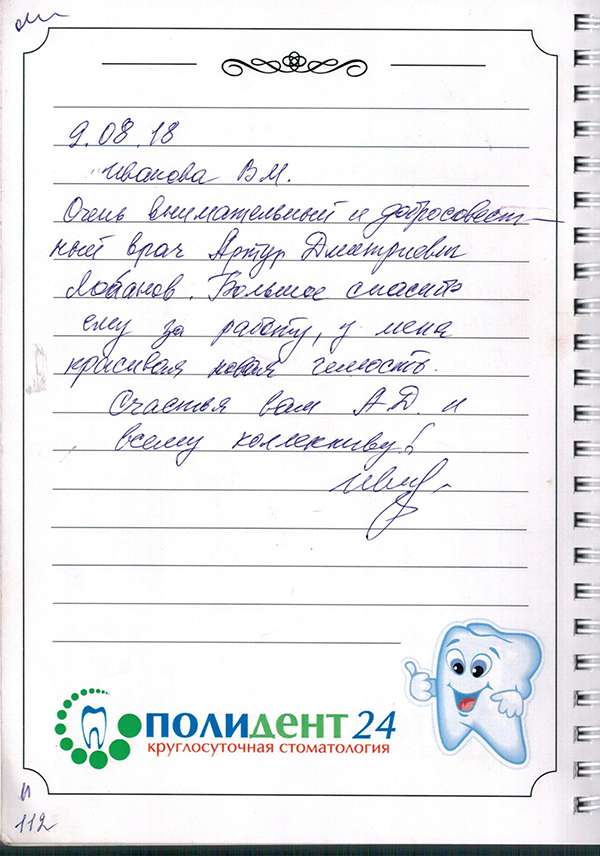 9.08.18
Иванова В М.
Очень внимательный и добросовест-
ный врач Артур Дмитриевич
Лобанов. Большое спасибо
ему за работу, у меня
красивая новая челюсть.
Счастья вам А.Д. и
всему коллективу!
ПОЛИДЕНТ 24
КРУГЛОСУТОЧНАЯ СТОМАТОЛОГИЯ
112